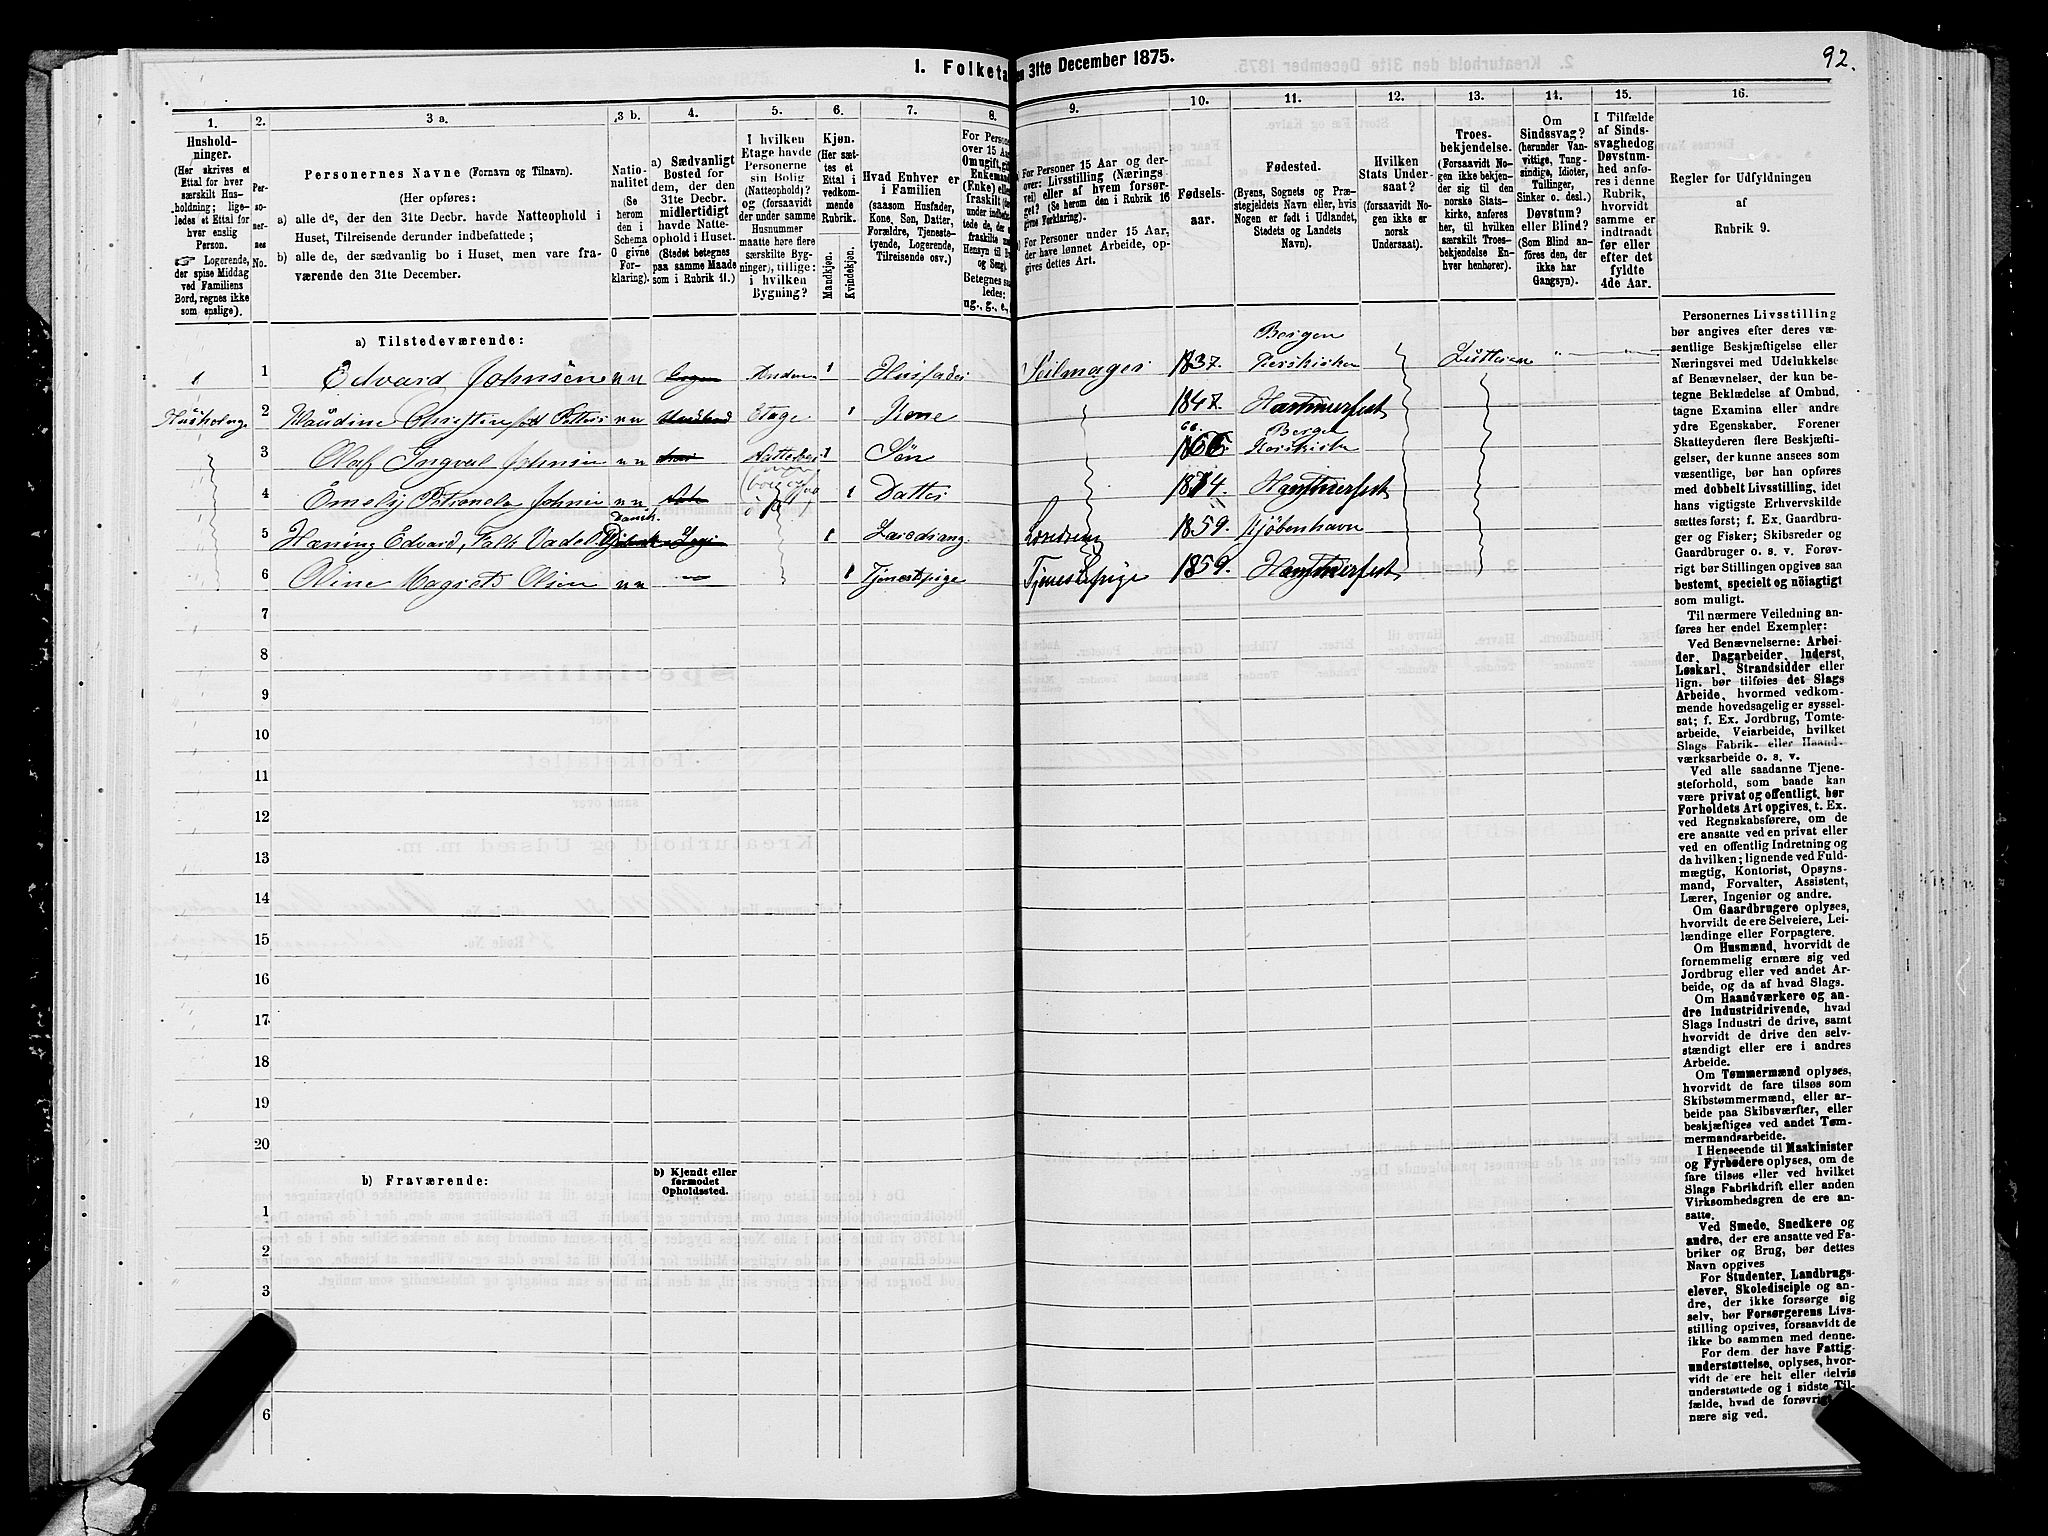 1. Folketa
en 31te December 1875.
92.
1.
2.
3 a.
3 b.
4.
5.
6.
7.
8.
9.
10.
11.
12.
13.
14.
15.
16.
Hushold-
ninger.
(Her skrives et
Ettal for hver
særskilt Hus-
holdning; lige-
ledes et Ettal for
hver enslig
Person.
☞ Logerende,
der spise Middag
ved Familiens
Bord, regnes ikke
som enslige).
Per-
so-
ner-
nes
No.
Personernes Navne (Fornavn og Tilnavn).
(Her opføres:
a) alle de, der den 31te Decbr. havde Natteophold i
Huset, Tilreisende derunder indbefattede;
b) alle de, der sædvanlig bo i Huset, men vare fra-
værende den 31te December.
Natio-
nalitet
(Se
herom
den i
Schema
O givne
For-
klaring).
a) Sædvanligt
Bosted for
dem, der den
31te Decbr.
midlertidigt
havde Natte-
ophold i Huset.
(Stedet betegnes
paa samme Maade
som i Rubrik 11.)
I hvilken
Etage havde
Personerne
sin Bolig
(Natteophold)?
og (forsaavidt
der under samme
Husnummer
maatte høre flere
særskilte Byg-
ninger), tillige:
i hvilken
Bygning?
Kjøn.
(Her sæt-
tes et
Ettal i
vedkom-
mende
Rubrik.
Mandkjøn.
Kvindekjøn.
Hvad Enhver er
i Familien
(saasom Husfader,
Kone, Søn, Datter,
Forældre, Tjeneste-
tyende, Logerende,
Tilreisende osv.)
For Person
over 15 Aar
Om ugift, gif
Enkeman
(Enke) elle
fraskilt (for
under indbefat-
tede de, der e
fraskilte med
Hensyn til B
og Seng).
Betegnes saa
ledes:
ug., g., e.,
For Personer 15 Aar og der-
over: Livsstilling (Nærings
vei) eller af hvem forsør-
get? (Se herom den i Rubrik 16
givne Forklaring).
For Personer under 15 Aar,
der have lønnet Arbeide, op-
gives dettes Art.
Fødsels-
aar.
Fødested.
(Byens, Sognets og Præ-
stegjeldets Navn eller, hvis
Nogen er født i Udlandet,
Stedets og Landets
Navn).
Hvilken
Stats Under-
saat?
(forsaavidt No-
gen ikke er
norsk
Undersaat).
Troes-
bekjendelse.
(Forsaavidt No-
gen ikke bekjen-
der sig til den
norske Stats-
kirke, anføres
her, til hvilken
særskilt Troes-
bekjendelse En-
hver henhører).
Om
Sindssvag?
(herunder Van-
vittige, Tung-
sindige, Idioter,
Tullinger,
Sinker o. desl.)
Døvstum?
eller Blind?
(Som Blind an-
føres den, der
ikke har
Gangsyn).
I Tilfælde
af Sinds-
svaghed og
Døvstum-
hed anfø-
res i denne
Rubrik,
hvorvidt
samme er
indtraadt
før eller
efter det
fyldte
4de Aar.
Regler for Udfyldningen
af
Rubrik 9.
a) Tilstedeværende:
1 1 Edvard Johnsen n n Anden 1 Husfader Seilmager 1837. Bergen Korskirken Lutheran
2 Christine Petters n n Etage 1 Kone 1847. Hammerfest
3 Olaf Ingval Johnsen n n 1 Søn 66. Bergen Korskirke
4 Emely Petronela Johnsen n n 1 Datter 1874. Hammerfest
5 Hening Edvard, Falk Vadel Dansk 1 Læredreng 1859. Kjøbenhavn
6 Oline Magrete Olsen n n 1 Tjenestpige Tjenestepige 1859. Hammerfest
7
8
9
10
11
12
13
14
15
16
17
18
19
20
b) Fraværende:
b) Kjendt eller
formodet
Opholdssted.
1
2
3
6
Personernes Livsstilling
bør angives efter deres væ-
sentlige Beskjæftigelse eller
Næringsvei med Udelukkelse
af Benævnelser, der kun be-
tegne Beklædelse af Ombud,
tagne Examina eller andre
ydre Egenskaber. Forener
Skatteyderen flere Beskjæfti-
gelser, der kunne ansees som
væsentlige, bør han opføres
med dobbelt Livsstilling, idet
hans vigtigste Erhvervskilde
sættes først; f. Ex. Gaardbru-
ger og Fisker; Skibsreder og
Gaardbruger o. s. v. Forøv-
rigt bør Stillingen opgives saa
bestemt, specielt og nöiagtigt
som muligt.
Til nærmere Veiledning an-
føres her endel Exempler:
Ved Benævnelserne: Arbei-
der, Dagarbeider, Inderst,
Løskarl, Strandsidder eller
lign. bør tilføies det Slags
Arbeide, hvormed vedkom-
mende hovedsagelig er syssel-
sat; f. Ex. Jordbrug, Tomte-
arbeide, Veiarbeide, hvilket
Slags Fabrik- eller Haand-
værksarbeide o. s. v.
Ved alle saadanne Tjene-
steforhold, som baade kan
være privat og offentligt, bør
Forholdets Art opgives, t. Ex.
ved Regnskabsførere, om de
ere ansatte ved en privat eller
ved en offentlig Indretning og
da hvilken; lignende ved Fuld-
mægtig, Kontorist, Opsyns-
mand, Forvalter, Assistent,
Lærer, Ingeniør og andre.
Om Gaardbrugere oplyses,
hvorvidt de ere Selveiere, Lei-
lændinge eller Forpagtere.
Om Husmænd, hvorvidt de
fornemmelig ernære sig ved
Jordbrug eller ved andet Ar-
beide, og da af hvad Slags.
Om Haandværkere og an-
dre Industridrivende, hvad
Slags Industri de drive, samt
hvorvidt de drive den selv-
stændigt eller ere i andres
Arbeide.
Om Tømmermænd oplyses,
hvorvidt de fare tilsøs som
Skibstømmermænd, eller ar-
beide paa Skibsværfter, eller
beskjæftiges ved andet Tøm-
mermandsarbeide.
I Henseende til Maskinister
og Fyrbødere oplyses, om de
fare tilsøs eller ved hvilket
Slags Fabrikdrift eller anden
Virksomhedsgren de ere an-
satte.
Ved Smede, Snedkere og
andre, der ere ansatte ved Fa-
briker og Brug, bør dettes
Navn opgives
For Studenter, Landbrugs-
elever, Skoledisciple og an-
dre, der ikke forsørge sig
selv, bør Forsørgerens Livs-
stilling opgives, forsaavidt de
ikke bo sammen med denne.
For dem, der have Fattig-
understøttelse, oplyses, hvor-
vidt de ere helt eller delvis
understøttede og i sidste Til-
fælde, hvad de forøvrigt
nære sig ved.